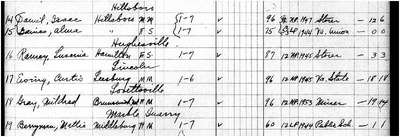 Hillsboro
14 Daniel, Isaac Hillsboro M M 1-7 v 96 12 1947 Storer - 12 6
15 Baines, Alva " F S 1-7 v 75 1944 Va. Union - 0 0
Hughesville
16 Ramey, Lucernia Hamilton F S 1-7 v 87 12 1955 Storer - 3 3
Lincoln
17 Ewing, Curtis Leesburg M M 1-6 v 96 12 1945 Va. State - 18 18
Lovettsville
18 Gray, Mildred Brunswick F M 1-7 v 96 12 1953 Miner - 19 14
Marble Quarry
19 Berryman, Mettie Middleburg F M 1-7 v 60 12 1944 Public Sch. - 1 1